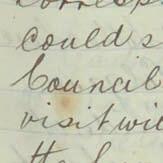 could s
Council
visit wi
the